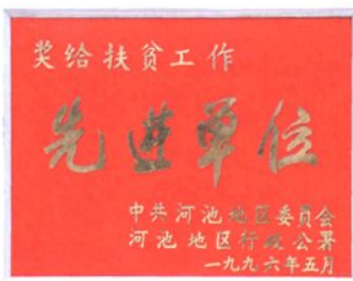 奖给扶贫工作
先进单位
中共河池地区委员会
河池地区行政公署
一九九六年五月